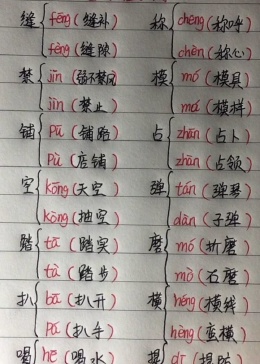 缝 féng (缝补) 称 chēng (称呼)
fèng (缝隙) chèn (称心)
禁 jīn (弱不禁风) 模 mó (模具)
jìn (禁止) mú (模样)
铺 pū (铺路) 占 zhān (占卜)
pù (店铺) zhàn (占领)
空 kōng (天空) 弹 tán (弹琴)
kòng (抽空) dàn (子弹)
踏 tā (踏实) 磨 mó (折磨)
tà (踏步) mò (石磨)
扒 bā (扒开) 横 héng (横线)
pá (扒手) hèng (蛮横)
喝 hē (喝水) 提 dī (提防)